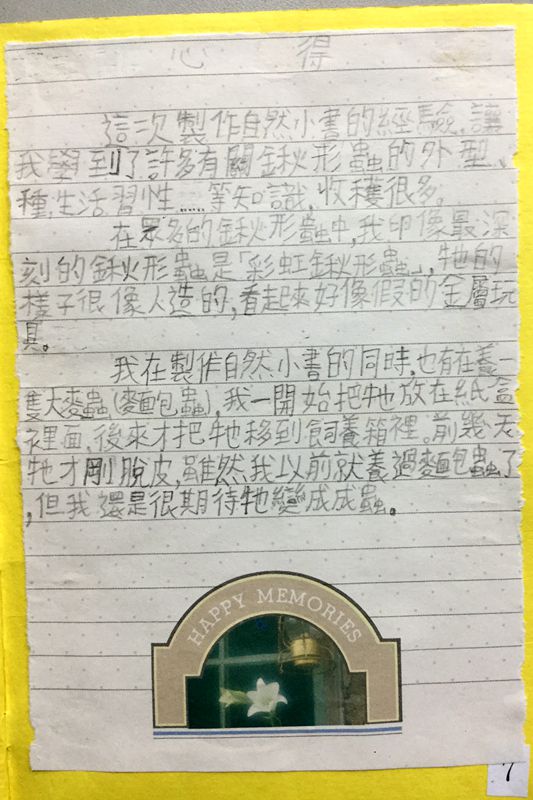 心得
這次製作自然小書的經驗,讓
我學到了許多有關鍬形蟲的外型、
種,生活習性……等知識,收穫很多。
在眾多的鍬形蟲中,我印像最深
刻的鍬形蟲是「彩虹鍬形蟲」,牠的
樣子很像人造的,看起來好像假的金屬玩
具。
我在製作自然小書的同時,也有在養一
隻大麥蟲(麵包蟲),我一開始把牠放在紙盒
裡面,後來才把牠移到飼養箱裡。前幾天
牠才剛脫皮,雖然我以前就養過麵包蟲了
,但我還是很期待牠變成成蟲。
HAPPY MEMORIES
7